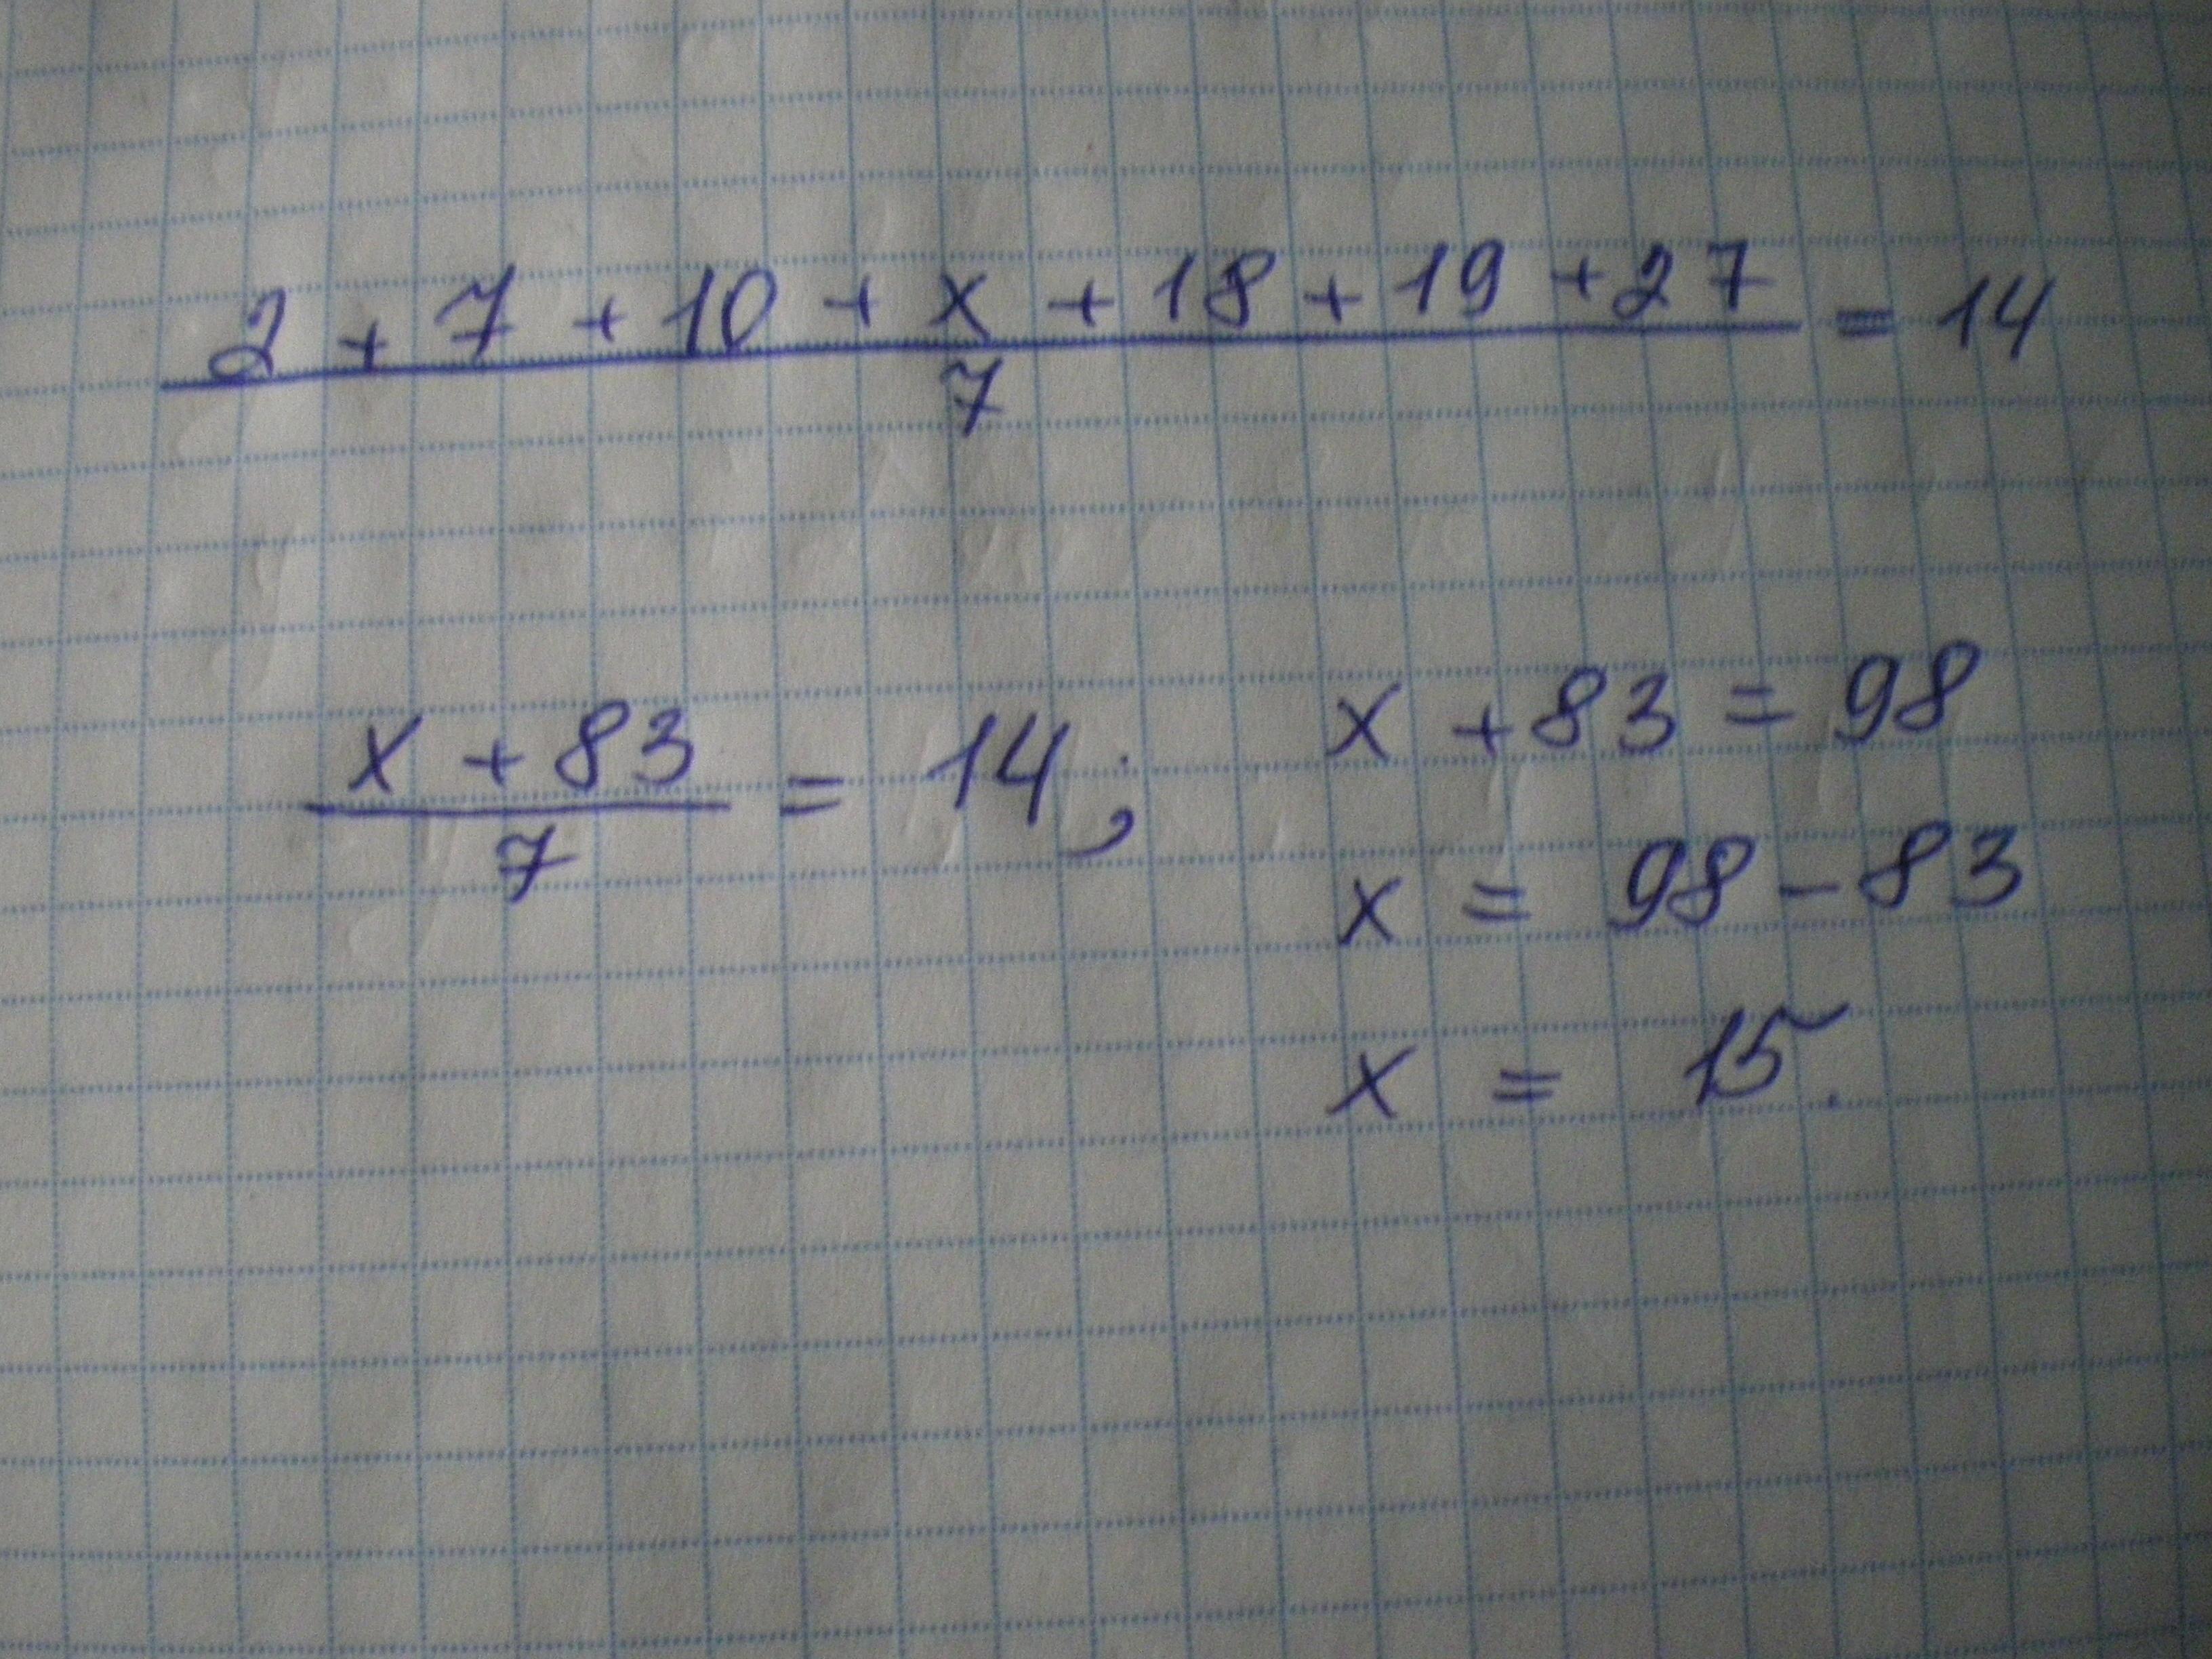 2 + 7 + 10 + x + 18 + 19 + 27 = 14
7
x + 83 = 14;
7
x + 83 = 98
x = 98 - 83
x = 15.